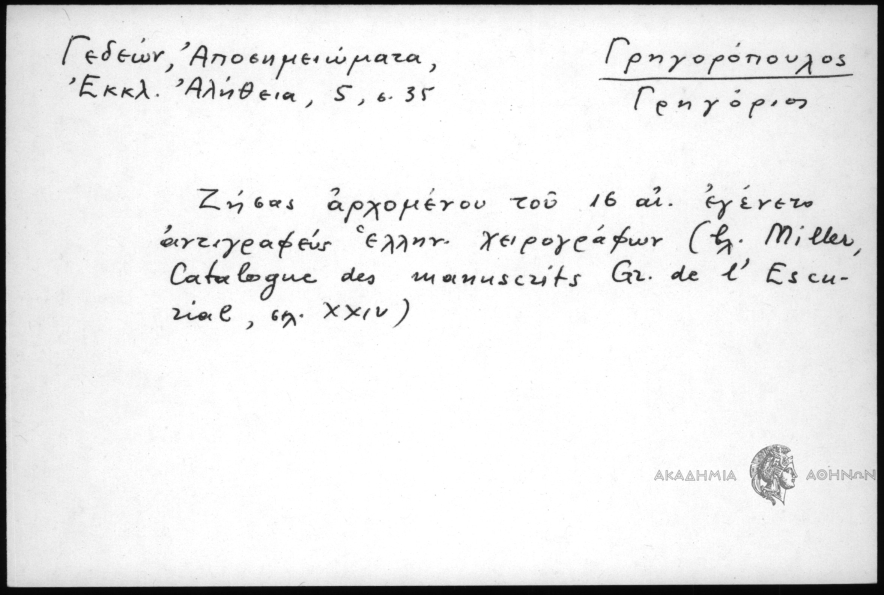 Γεδεών, Ἀποσημειώματα,
Ἐκκλ. Ἀλήθεια, 5, σ. 35
Γρηγορόπουλος
Γρηγόριος
Ζήσας ἀρχομένου τοῦ 16 αἰ. ἐγένετο
ἀντιγραφεύς ἑλλην. χειρογράφων (βλ. Miller,
Catalogue des manuscrits Gr. de l' Escu-
rial, σελ. XXIV)
ΑΚΑΔΗΜΙΑ ΑΘΗΝΩΝ